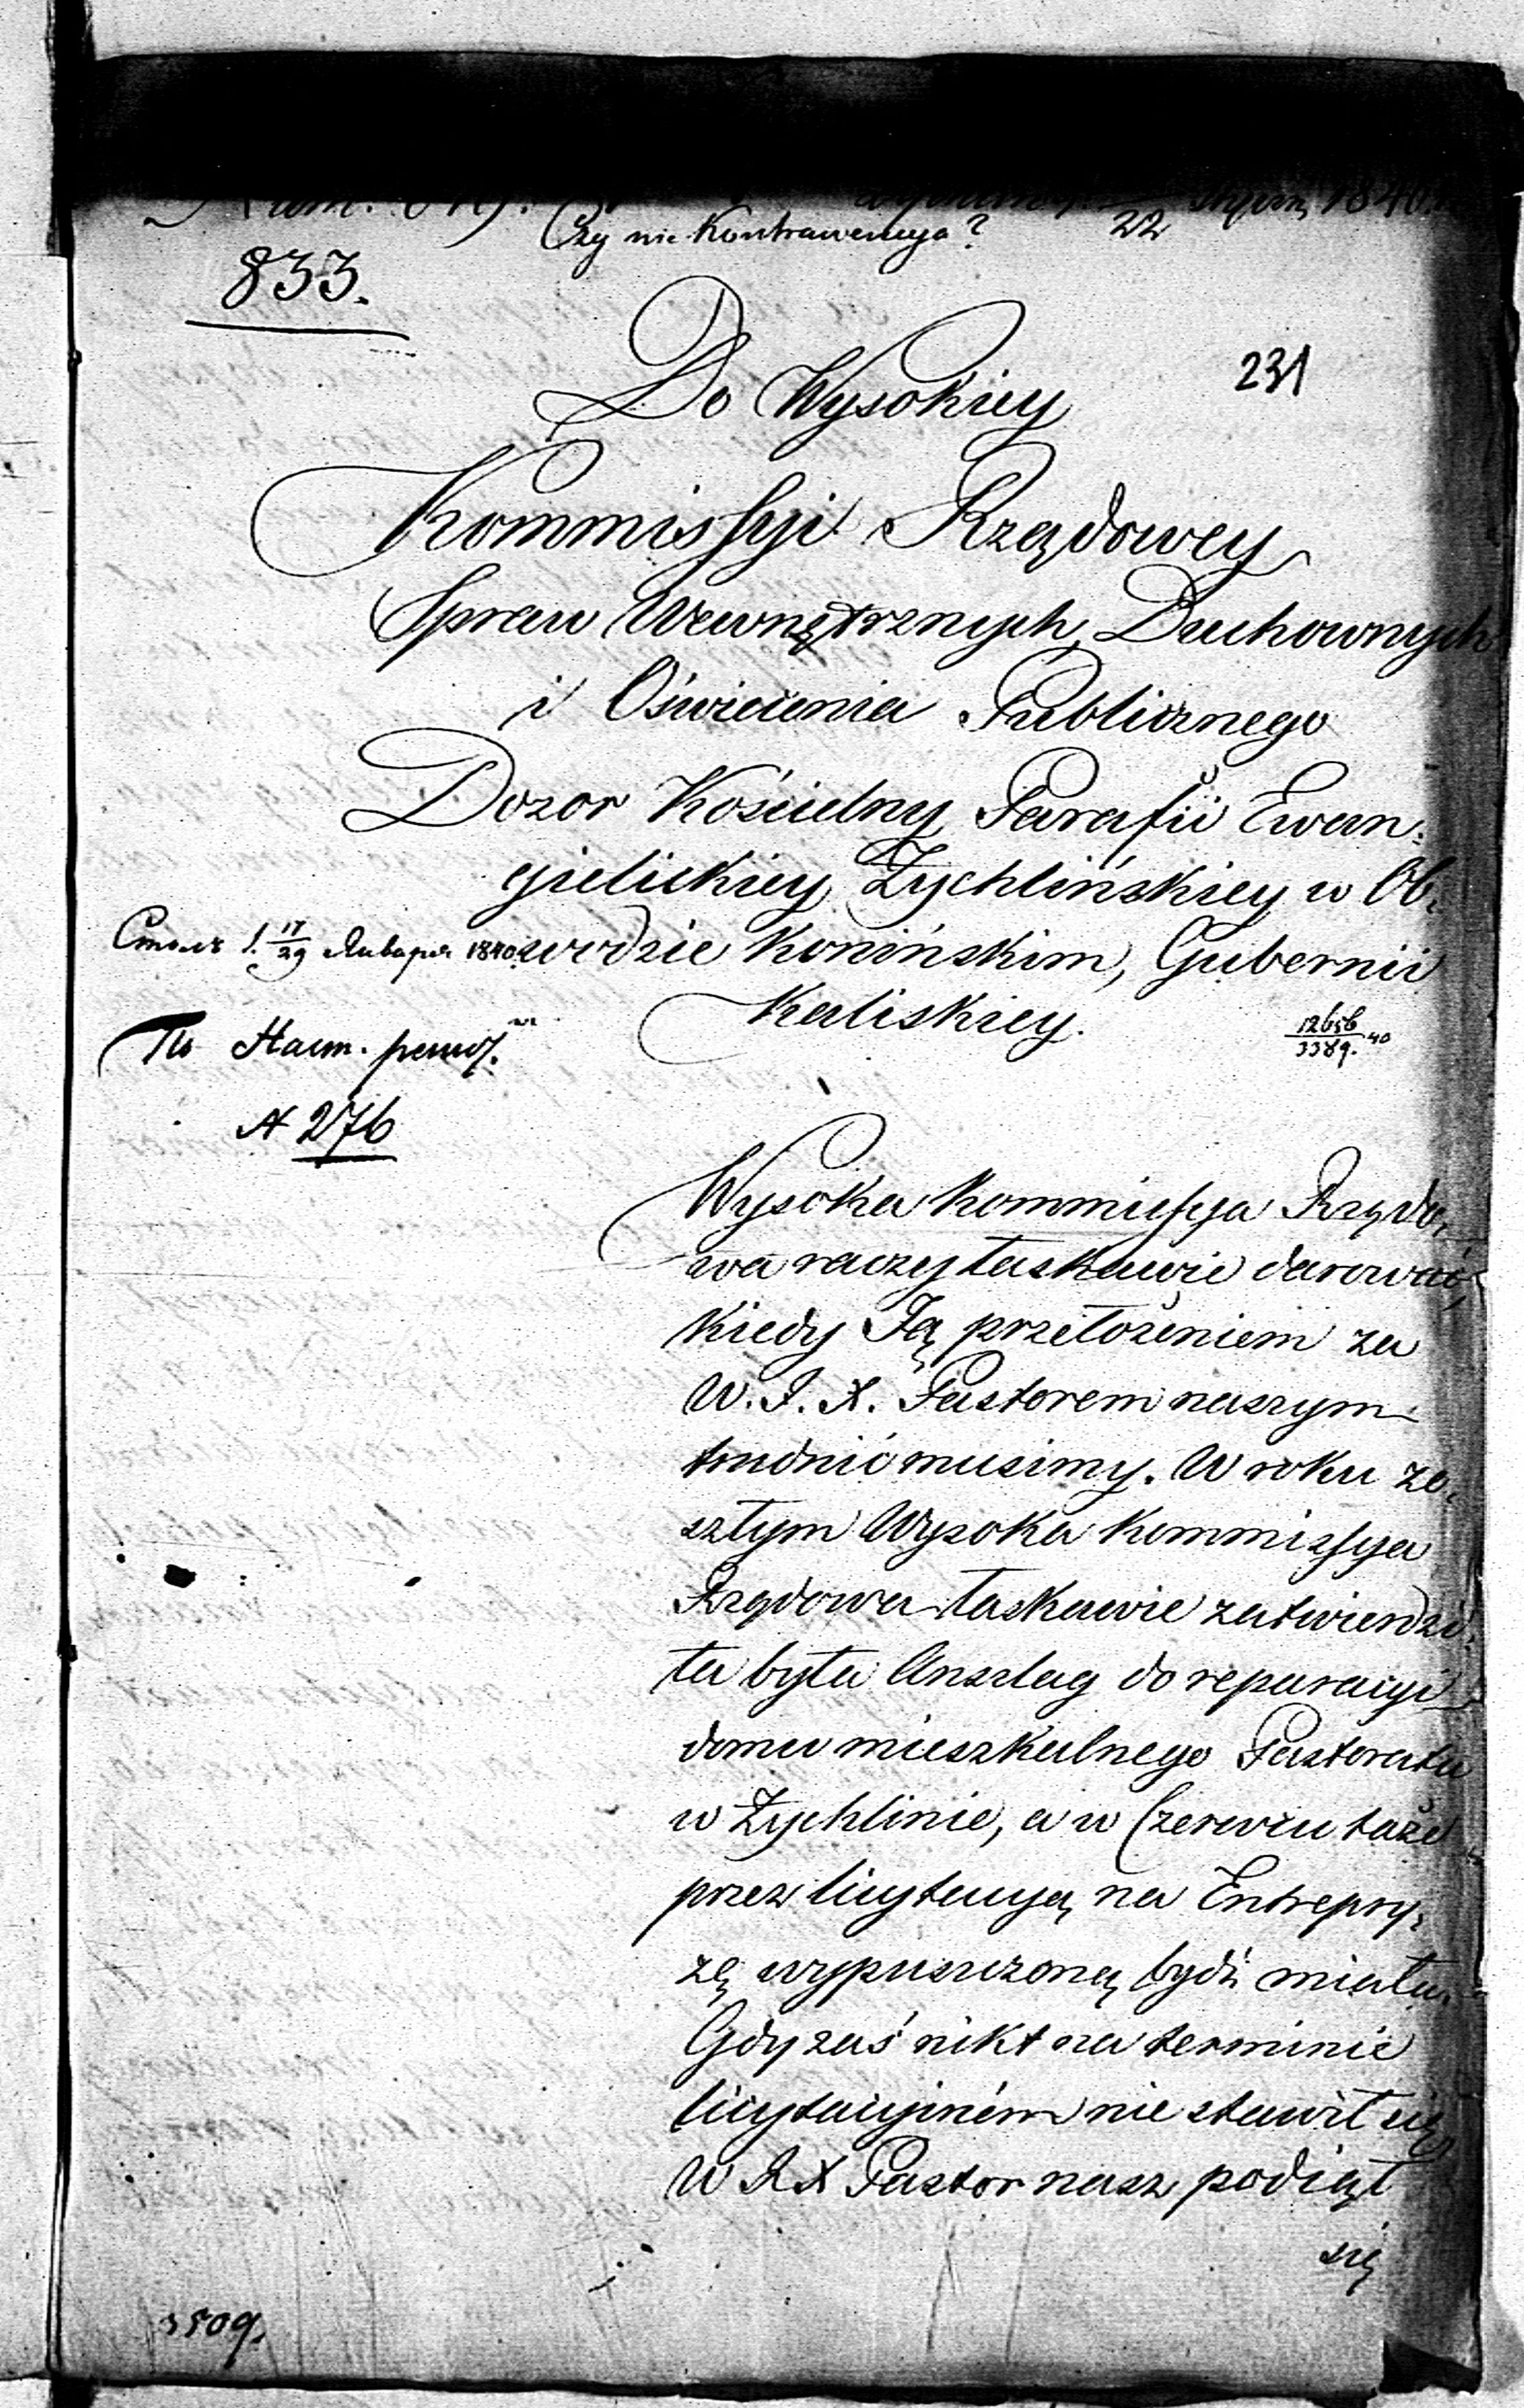 22 1840
Czy nie Kontrawencya?
833.
231
Do Wysokiey
Kommissyi Rządowey
Spraw Wewnętrznych, Duchownych
i Oświecenia Publicznego
Dozor Kościelny Parafii Ewan-
gielickiey Żychlińskiey w Ob-
wodzie Konińskim, Gubernii
Kaliskiey.
1. 17/29 Января 1840.
12656/3389. 40
№ 276
Wysoka Kommissya Rządo-
wa raczy łaskawie darować,
kiedy Ją przełożeniem za
W. J. X. Pastorem naszym
trudnić musimy. W roku ze-
szłym Wysoka Kommissya
Rządowa łaskawie zatwierdzi-
ła była Anszlag do reparacyi
domu mieszkalnego Pastoratu
w Żychlinie, a w Czerwcu taże
przez licytacyą na Entrepry-
zę wypuszczoną bydź miała.
Gdy zaś nikt na terminie
licytacyiném nie stawił się
W J X Pastor nasz podiął
się
3509.